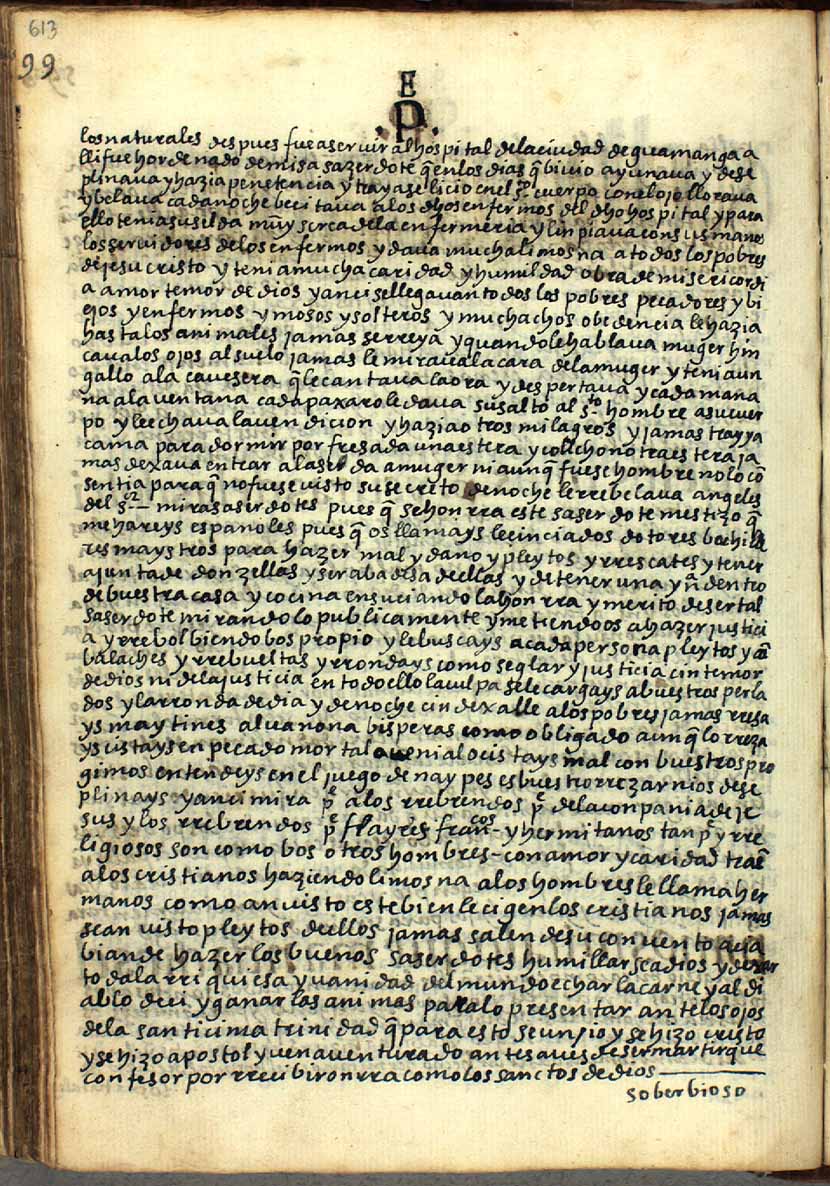 613
99
E
.p.
los naturales despues fue a servir al hospital de la ciudad de guamanga a
lli fue hordenado de misa sazerdote q̃ en los dias q̃ bivio ayunava y dese
plinava y hazia penetencia y traya selicio en el s.to cuerpo con el ojo llorava
y belava cada noche becitava a los dhos enfermos del dho hospital y para
ello tenia su silda muy serca de la enfermeria y linpiava con sus manos
los servidores de los enfermos y dava mucha limosna a todos los pobres
de jesucristo y tenia mucha caridad y humildad obra de misericordi
a amor temor de dios y anci se llegavan todos los pobres pecadores y bi
ejos y enfermos y mosos y solteros y muchachos obedencia le hazia
hasta los animales jamas se rreya y quando le hablava muger hin
cava los ojos al suelo jamas le mirava la cara de la muger y tenia un
gallo a la cavesera q̃ le cantava la ora y despertava y cada maña
na a la ventana cada paxaro le dava su salto al s.to hombre a su cuer
po y le echava la vendicion y hazia otros milagros y jamas trayya
cama para dormir por fresada una estera y collchon otra estera ja
mas dexava entrar a la selda a muger ni aunq̃ fuese hombre no lo cõ
sentia para q̃ no fuese visto su secreto de noche le rrebelava angeles
del s.r – mira saserdotes pues q̃ se honrra este saserdote mestizo q̃
me hareys españoles pues q̃ os llamays lecinciados dotores bachille
res maystros para hazer mal y daño y pleytos y rrescates y tener
ajunta de donzellas y ser abadesa dellas y de tener una yª dentro
de buestra casa y cocina ensuciando la honrra y merito de ser tal
saserdote mirandolo publicamente y metiendoos a hazer justici
a y rrebolbiendo bos propio y le buscays a cada persona pleytos y cã
balaches y rrebueltas y rrondays como seglar y justicia cin temor
de dios ni de la justicia en todo ello la culpa se le cargays a buestros perla
dos y la rronda de dia y de noche cin dexalle a los pobres jamas rresa
ys maytines a la nona bisperas como obligado aunq̃ lo rreza
ys cistays en pecado mortal o venial o cistays mal con buestros pro
gimos entendeys en el juego de naypes es buestro rrezar ni os dese
plinays y anci mira p.e a los rrebrendos p.e de la conpania de je
sus y los rrebrendos p.e fflayres fran.cos – y hermitanos tan p.e y rre
ligiosos son como bos otros hombres – con amor y caridad traẽ
a los cristianos haziendo limosna a los hombres le llama her
manos como an visto este bien le cigen los cristianos jamas
se an visto pleytos dellos jamas salen de su convento acia
bian de hazer los buenos saserdotes humillarse a dios y dexar
toda la rriquiesa y vanidad del mundo echar la carne y al di
ablo deci y ganar las animas para lo presentar ante los ojos
de la santicima trinidad q̃ para esto se unjio y se hizo cristo
y se hizo apostol y venaventurado antes aves de ser martir que
confesor por rrecibir onrra como los sanctos de dios —
soberbioso